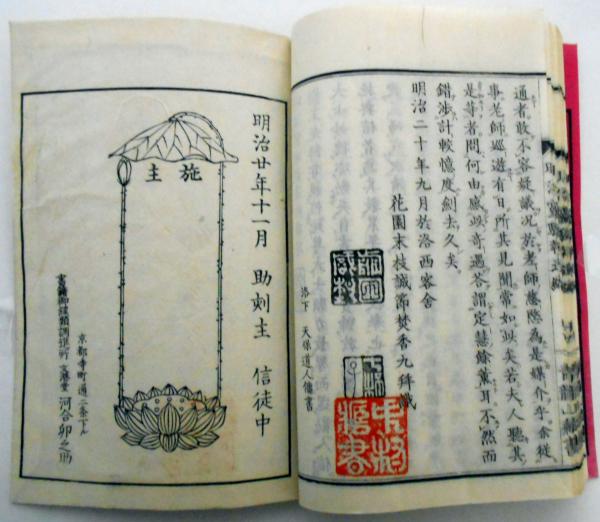 通者敢不容疑議況於老師慈隲為是媒介乎余從
事老師巡遊有日所其見聞常如此矣若夫人聽其
是等者問何由感此奇遇荅謂定慧餘薫耳不然而
錯渉計較憶度劍去久矣
明治二十年九月於洛西客舎
花園末枝誠節焚香九拜識
洛下 天保道人傭書
明治廿年十一月 助刻主 信徒中
施主
京都寺町通二条下ル
文榮堂 河合卯之助